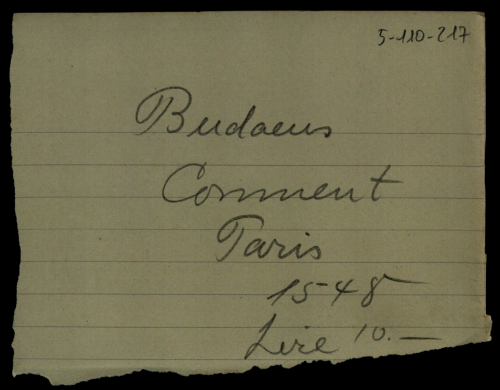 5-110-217
Budaeus
Comment
Paris
1548
Lire 10.—